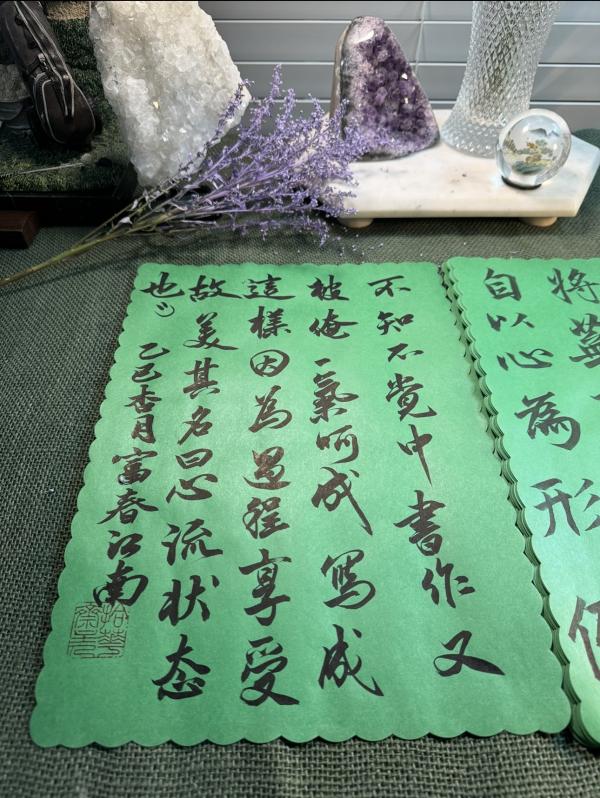 将蕪
自以心為形
不知不覺中書作又
被俺一氣呵成寫成
這樣因為過程享受
故美其名曰心流状态
也
乙巳杏月富春江南